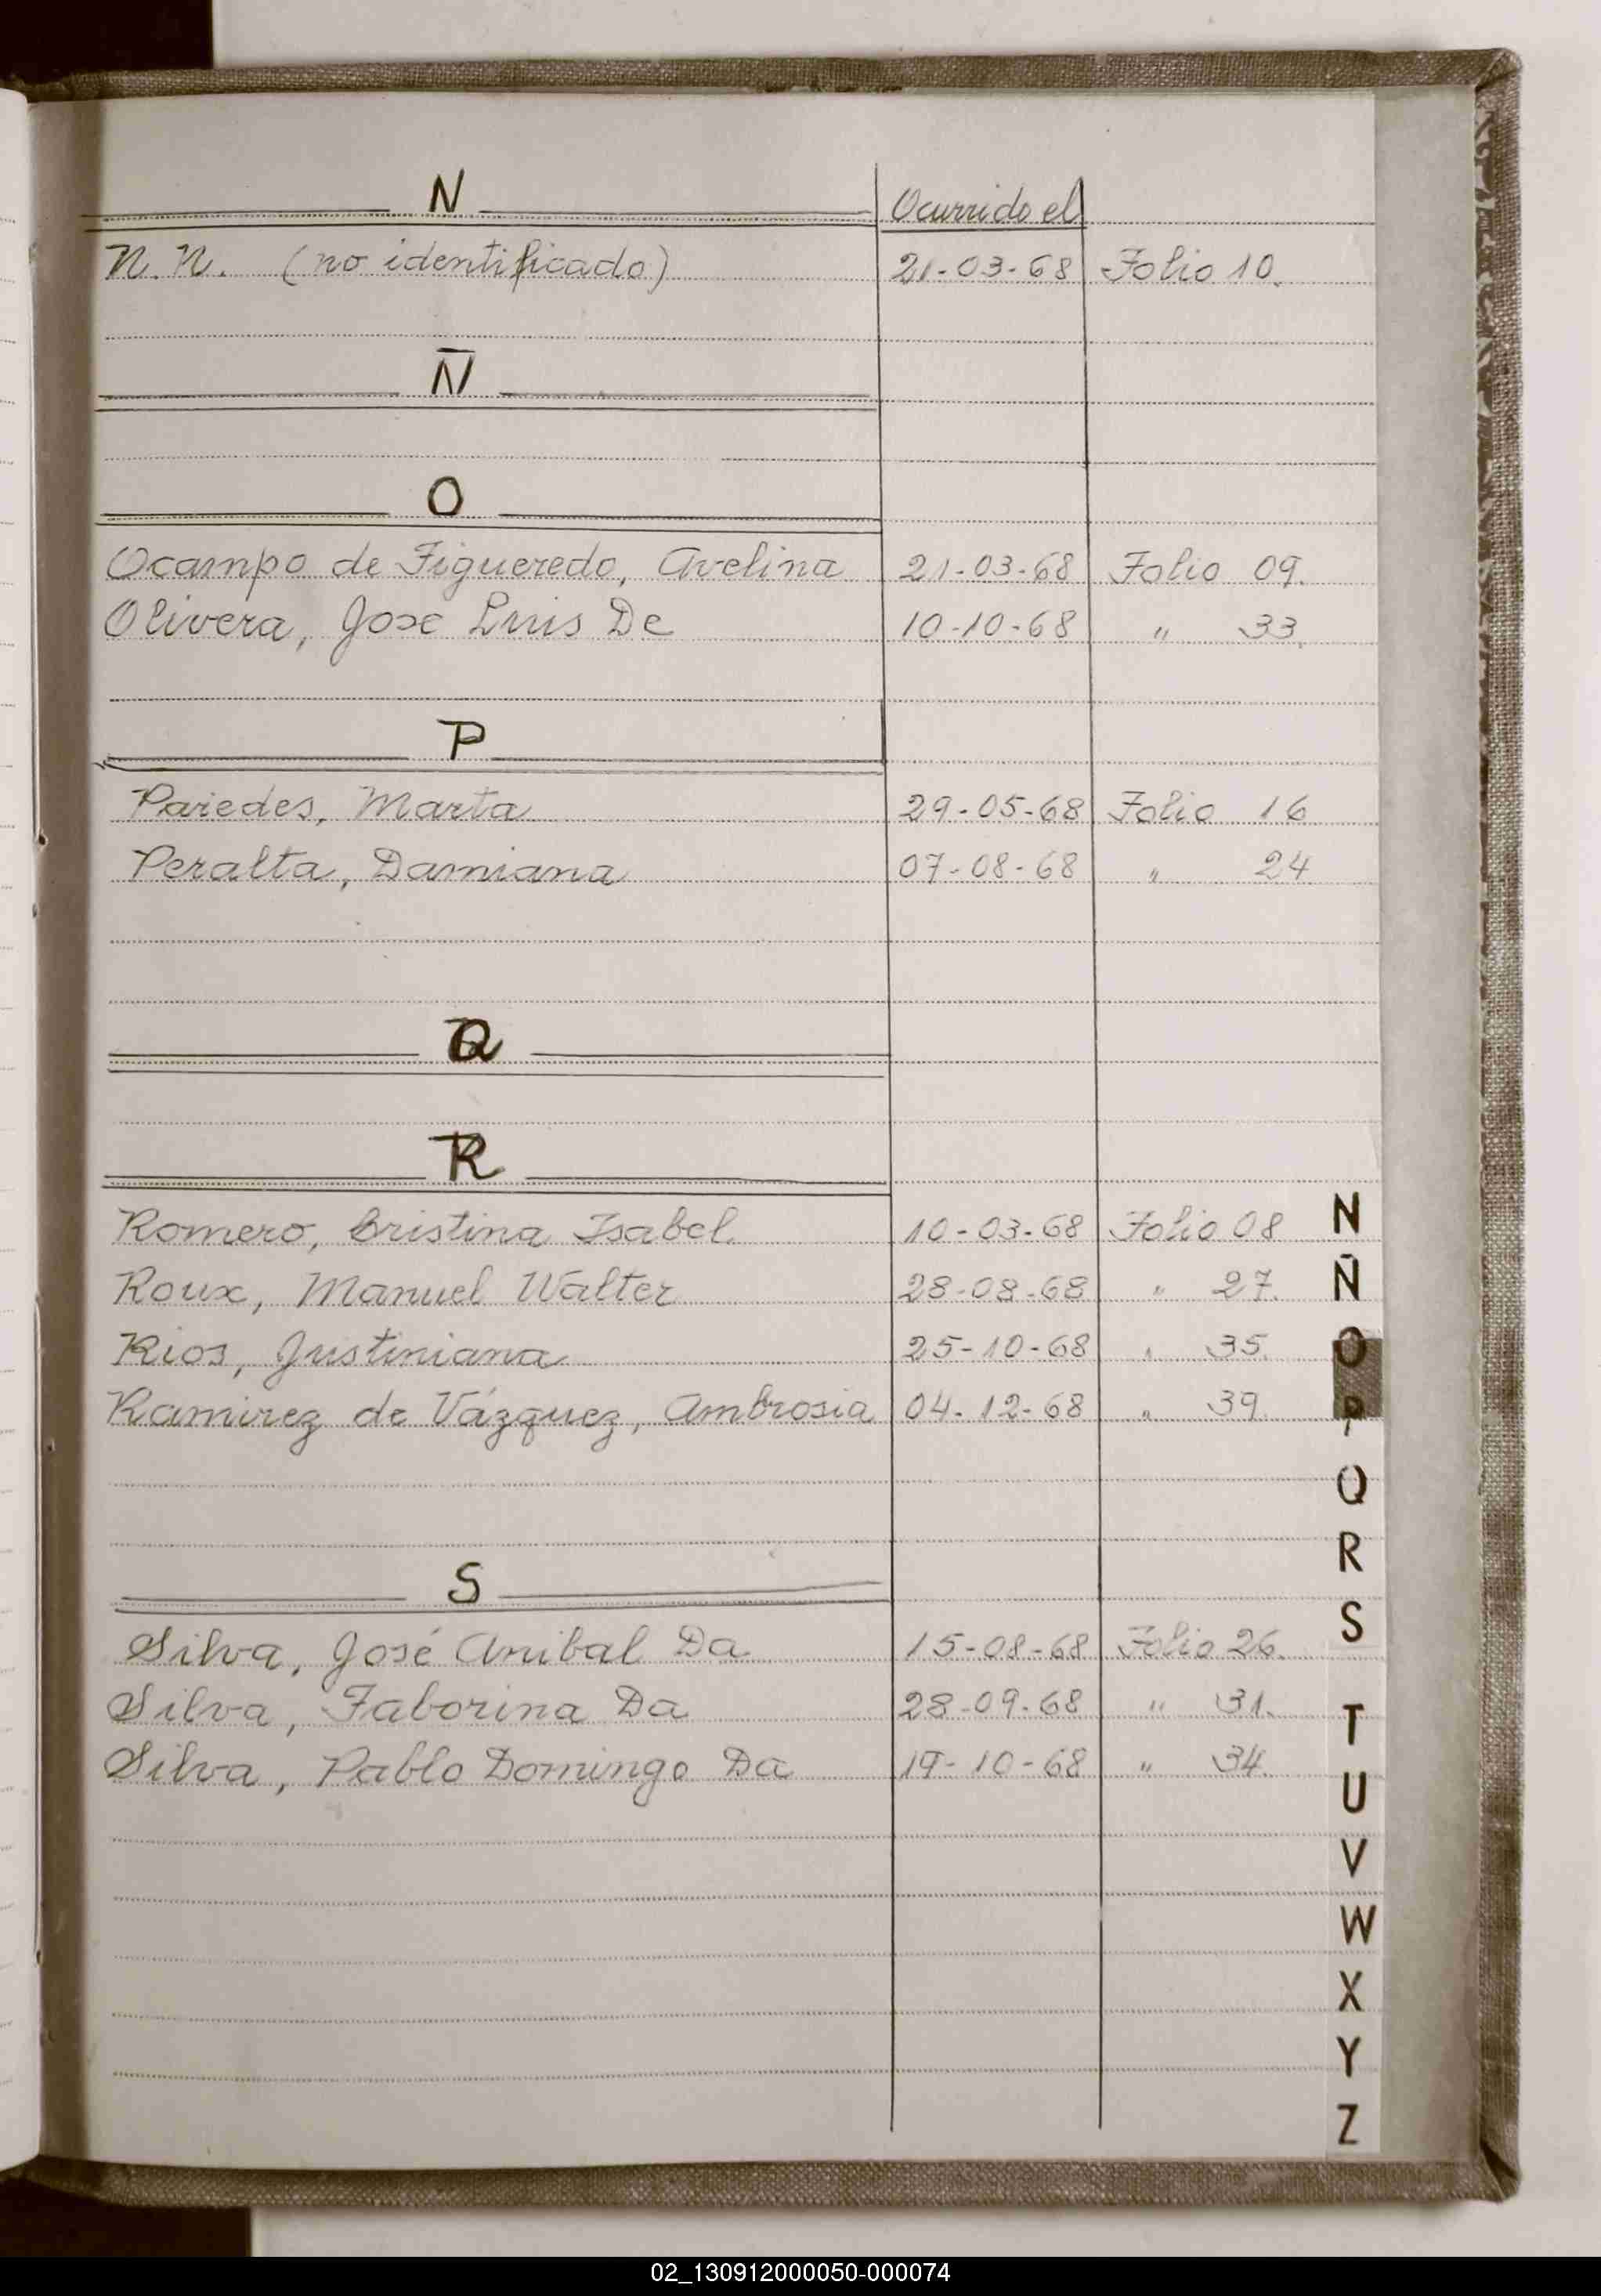 N Ocurrido el
N. N. (no identificado) 21-03-68 Folio 10.
Ñ
O
Ocampo de Figueredo, Avelina 21-03-68 Folio 09.
Olivera, Jose Luis De 10-10-68 " 33.
P
Paredes, Marta 29-05-68 Folio 16
Peralta, Damiana 07-08-68 " 24
Q
R
Romero, Cristina Isabel. 10-03-68 Folio 08
Roux, Manuel Walter 28-08-68 " 27.
Rios, Justiniana 25-10-68 " 35.
Ramirez de Vázquez, Ambrosia 04-12-68 " 39.
S
Silva, José Anibal Da 15-08-68 Folio 26.
Silva, Faborina Da 28-09-68 " 31.
Silva, Pablo Domingo Da 19-10-68 " 34.
N
Ñ
O
P
Q
R
S
T
U
V
W
X
Y
Z
02_130912000050-000074